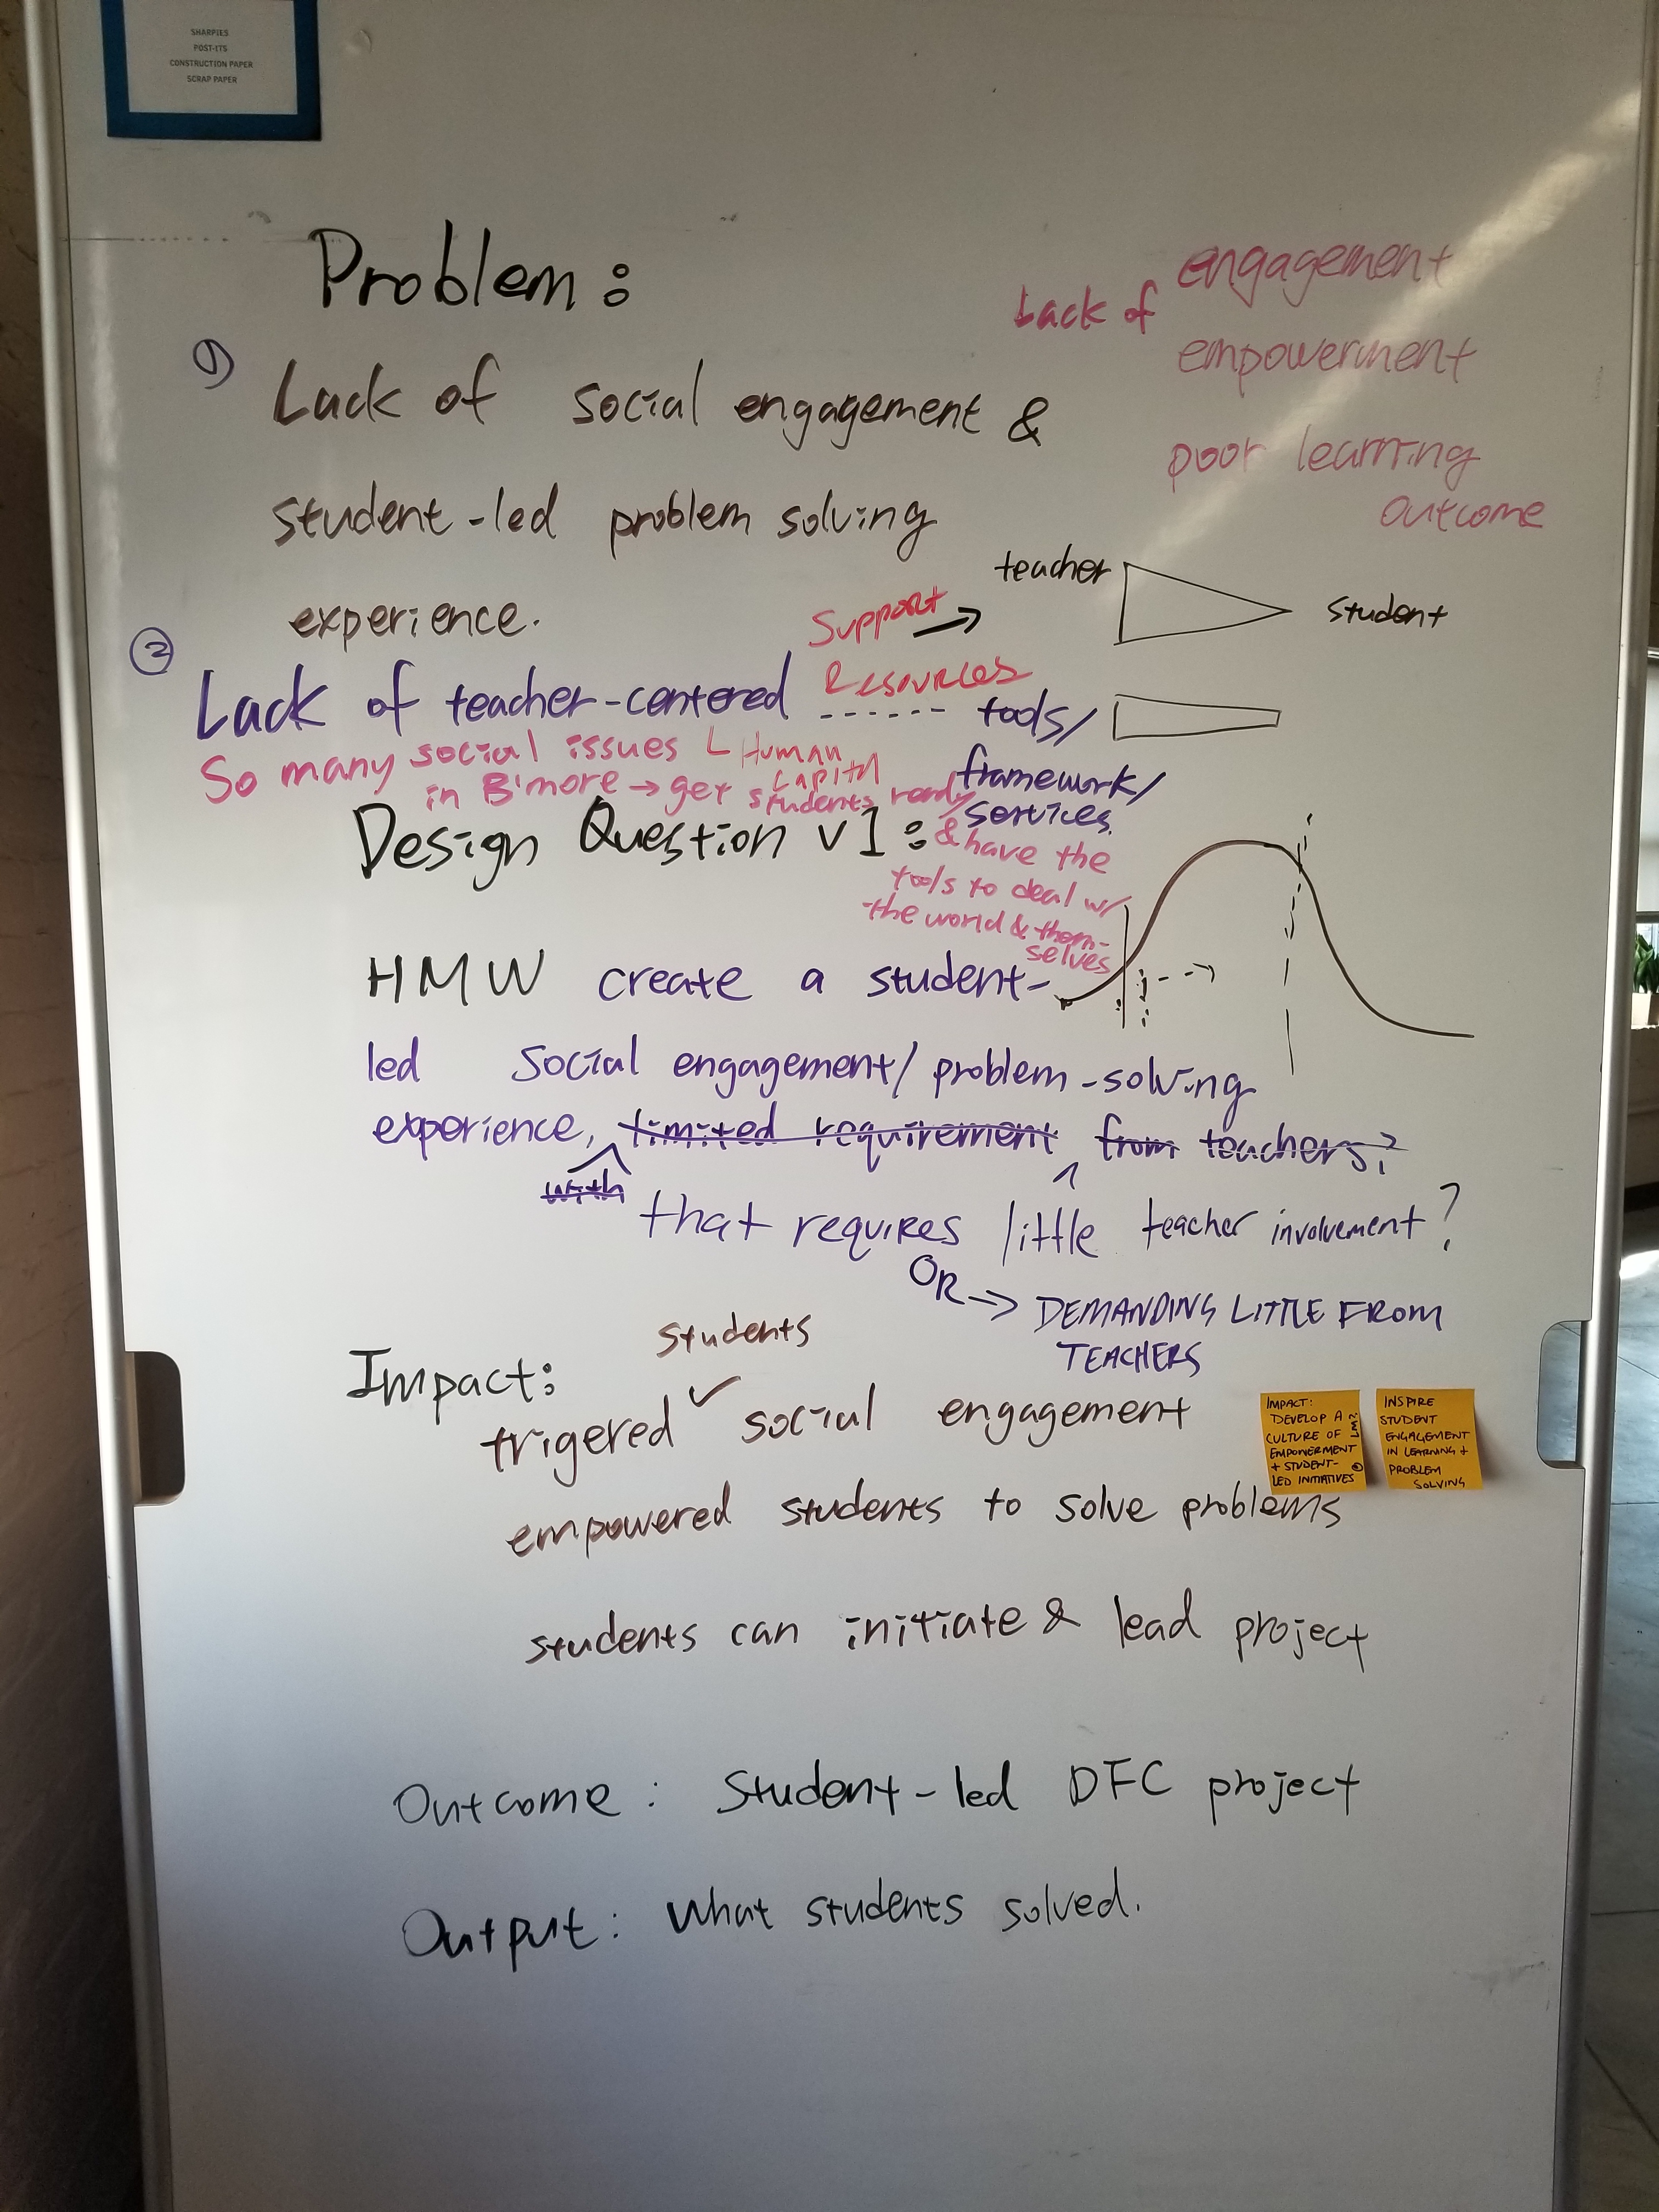 SHARPIES
POST-ITS
CONSTRUCTION PAPER
SCRAP PAPER
Problem:
Lack of engagement
empowerment
poor learning
outcome
1)
Lack of social engagement &
student-led problem solving
experience.
teacher
student
Support
Resources
2
Lack of teacher-centered ------ tools/
framework/
services.
Human
Capital
So many social issues
in B'more → get students ready
& have the
tools to deal w/
the world & them-
selves
Design Question v1:
HMW create a student-
led social engagement/problem-solving
experience, limited requirement from teachers?
with
that requires little teacher involvement?
OR → DEMANDING LITTLE FROM
TEACHERS
Impact:
students
trigered social engagement
empowered students to solve problems
students can initiate & lead project
IMPACT:
DEVELOP A
CULTURE OF
EMPOWERMENT
+ STUDENT-
LED INITIATIVES
INSPIRE
STUDENT
ENGAGEMENT
IN LEARNING +
PROBLEM
SOLVING
Outcome: Student-led DFC project
Output: What students solved.